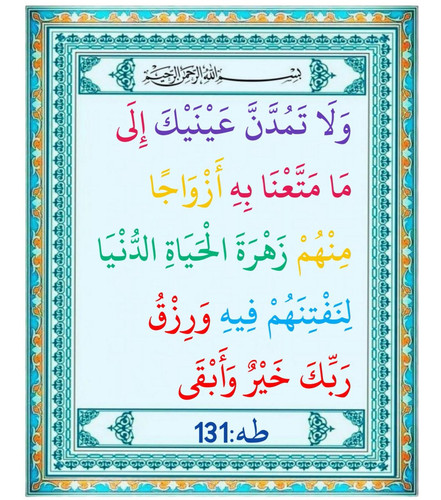 بسم الله الرحمن الرحيم
وَلَا تَمُدَّنَّ عَيْنَيْكَ إِلَى
مَا مَتَّعْنَا بِهِ أَزْوَاجًا
مِنْهُمْ زَهْرَةَ الْحَيَاةِ الدُّنْيَا
لِنَفْتِنَهُمْ فِيهِ وَرِزْقُ
رَبِّكَ خَيْرٌ وَأَبْقَى
طه:131